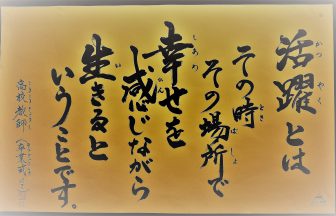 活躍とは
その時
その場所で
幸せを
感じながら
生きると
いうことです。
高校教師（卒業式